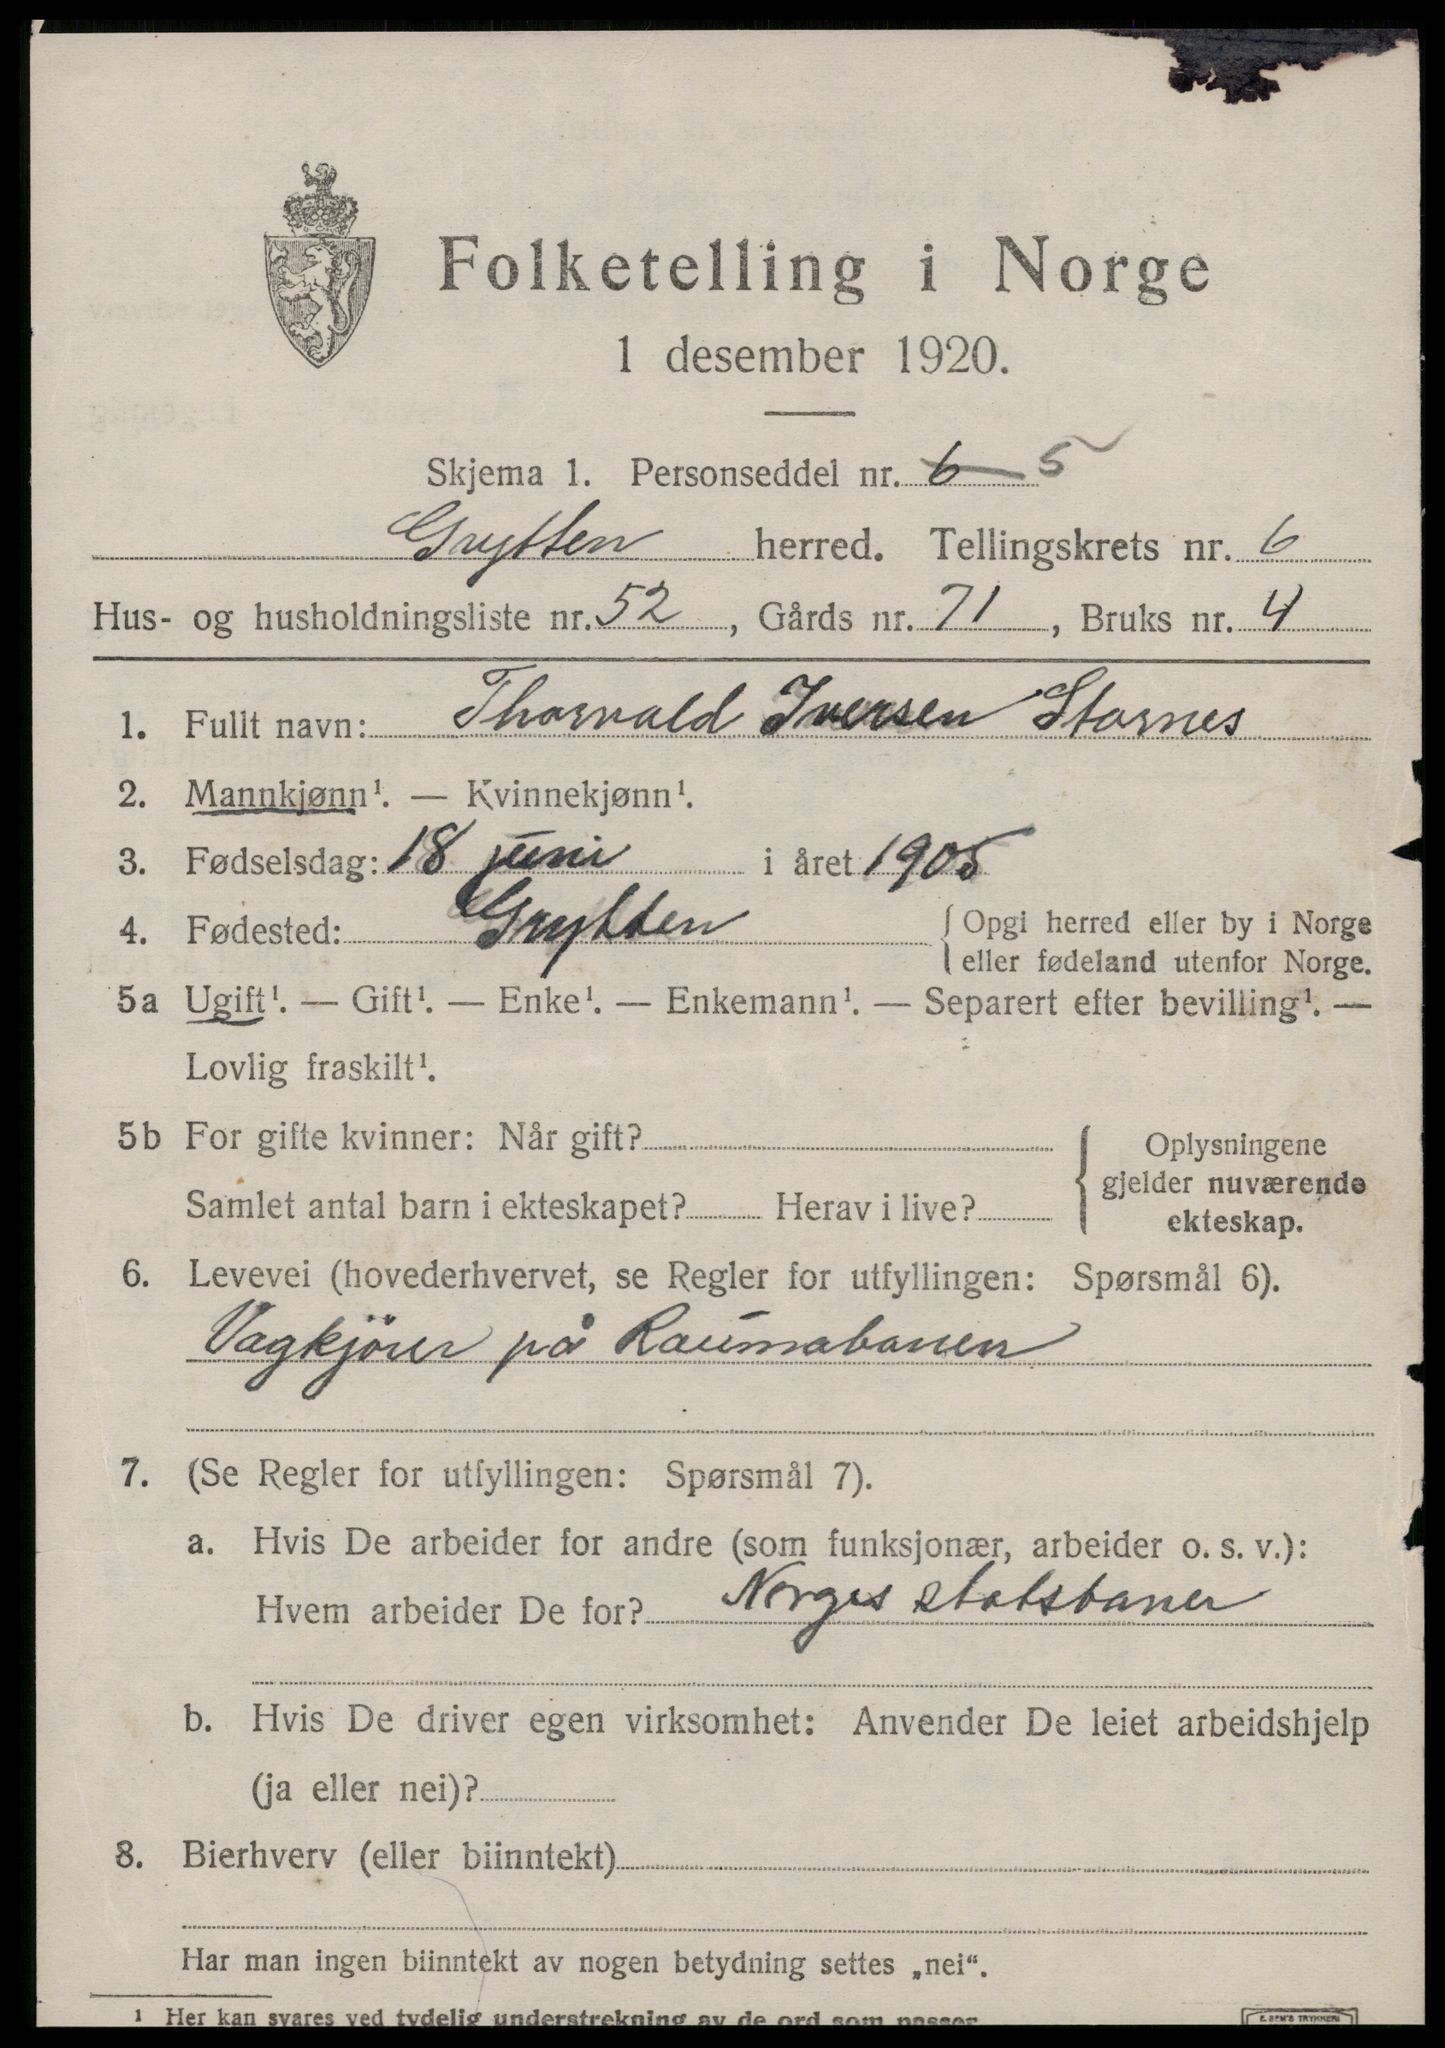 Folketelling i Norge
1 desember 1920.
Skjema 1. Personseddel nr. 6 5
Grytten herred. Tellingskrets nr. 6
Hus- og husholdningsliste nr. 52, Gårds nr. 71, Bruks nr. 4
1. Fullt navn: Thorvald Iversen Stornes
2. Mannkjønn¹. — Kvinnekjønn¹.
3. Fødselsdag: 18 juni i året 1905
4. Fødested: Grytten { Opgi herred eller by i Norge
eller fødeland utenfor Norge.
5a Ugift¹. — Gift¹. — Enke¹. — Enkemann¹. — Separert efter bevilling¹. —
Lovlig fraskilt¹.
5b For gifte kvinner: Når gift?
Samlet antal barn i ekteskapet? Herav i live?
{ Oplysningene
gjelder nuværende
ekteskap.
6. Levevei (hovederhvervet, se Regler for utfyllingen: Spørsmål 6).
Vagkjörer på Raumabanen
7. (Se Regler for utfyllingen: Spørsmål 7).
a. Hvis De arbeider for andre (som funksjonær, arbeider o. s. v.):
Hvem arbeider De for? Norges statsbaner
b. Hvis De driver egen virksomhet: Anvender De leiet arbeidshjelp
(ja eller nei)?
8. Bierhverv (eller biinntekt)
Har man ingen biinntekt av nogen betydning settes „nei“.
¹ Her kan svares ved tydelig understrekning av de ord som passer.
E. SEM'S TRYKKERI